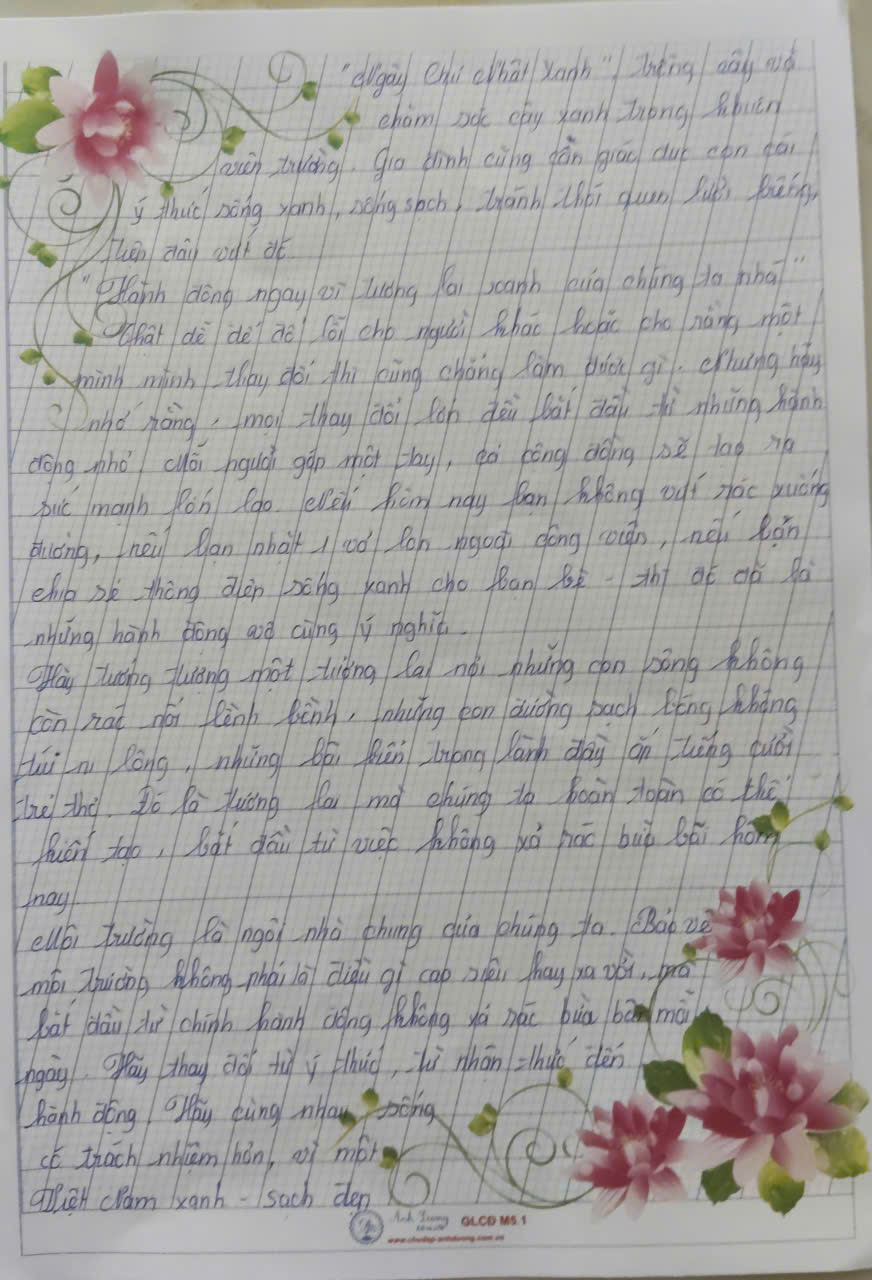 "Ngày Chủ Nhật xanh", trồng cây và
chăm sóc cây xanh trong khuôn
viên trường. Gia đình cũng cần giáo dục con cái
ý thức sống xanh, sống sạch, tránh thói quen lười biếng,
tiện đâu vứt đó.
"Hành động ngay vì tương lai xanh của chúng ta nhé"
Thật dễ để đổ lỗi cho người khác hoặc cho rằng một
mình mình thay đổi thì cũng chẳng làm được gì. Nhưng hãy
nhớ rằng, mọi thay đổi lớn đều bắt đầu từ những hành
động nhỏ. Mỗi người góp một tay, cả cộng đồng sẽ tạo ra
sức mạnh lớn lao. Nếu hôm nay bạn không vứt rác xuống
đường, nếu bạn nhặt 1 vỏ lon ngoài công viên, nếu bạn
chia sẻ thông điệp sống xanh cho bạn bè - thì đó đã là
những hành động vô cùng ý nghĩa.
Hãy tưởng tượng một tương lai nơi những con sông không
còn rác nổi lềnh bềnh, những con đường sạch bóng không
túi ni lông, những bãi biển trong lành đầy ắp tiếng cười
trẻ thơ. Đó là tương lai mà chúng ta hoàn toàn có thể
kiến tạo, bắt đầu từ việc không xả rác bừa bãi hôm
nay
Môi trường là ngôi nhà chung của chúng ta. Bảo vệ
môi trường không phải là điều gì cao siêu hay xa vời, mà
bắt đầu từ chính hành động không xả rác bừa bãi mỗi
ngày. Hãy thay đổi từ ý thức, từ nhận thức đến
hành động. Hãy cùng nhau sống
có trách nhiệm hơn, vì một
Việt Nam xanh - sạch đẹp
Anh Dương GLCD M5.1
www.chudep-anhduong.com.vn